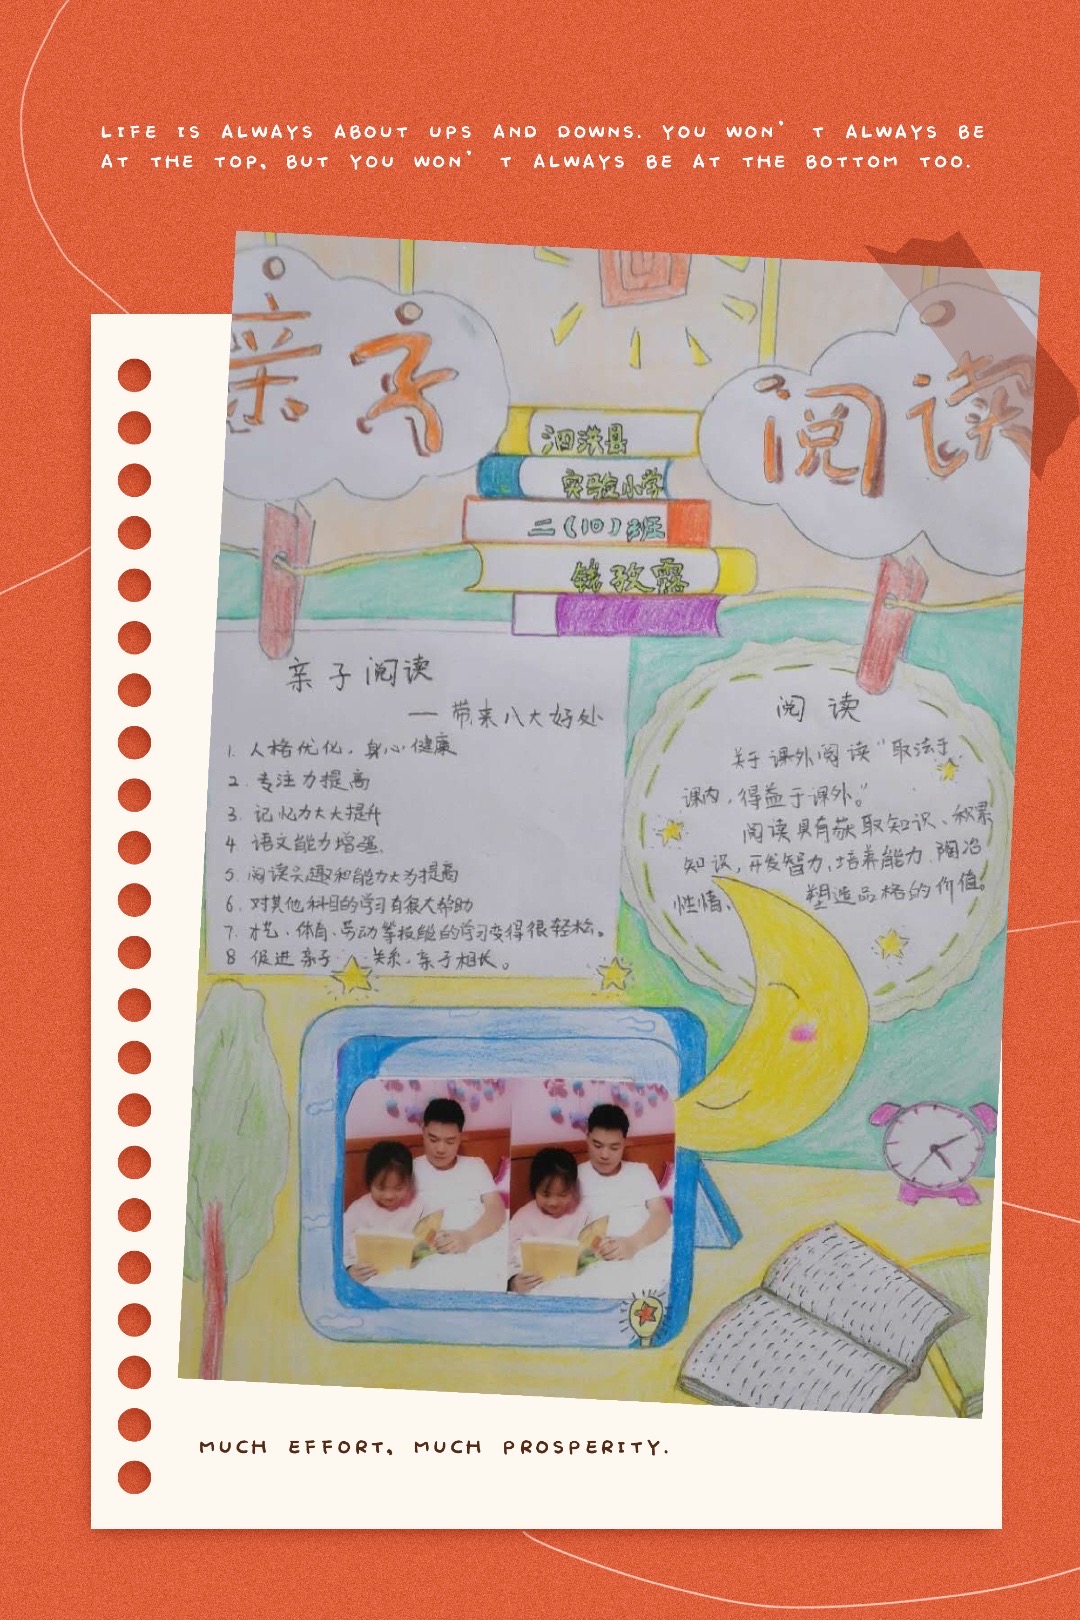 LIFE IS ALWAYS ABOUT UPS AND DOWNS. YOU WON' T ALWAYS BE
AT THE TOP, BUT YOU WON' T ALWAYS BE AT THE BOTTOM TOO.
亲子
阅读
泗洪县
实验小学
二(10)班
钱孜露
亲子阅读
— 带来八大好处
1. 人格优化，身心健康
2. 专注力提高
3. 记忆力大大提升
4. 语文能力增强.
5. 阅读兴趣和能力大为提高
6. 对其他科目的学习有很大帮助
7. 才艺、体育、劳动等技能的学习变得很轻松。
8 促进亲子关系，亲子相长。
阅读
关于课外阅读“取法于
课内，得益于课外。”
阅读具有获取知识、积累
知识，开发智力，培养能力，陶冶
性情、塑造品格的价值。
MUCH EFFORT, MUCH PROSPERITY.